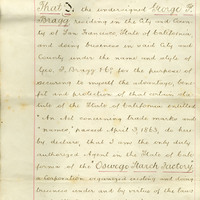 That I, the undersigned George F.
Bragg residing in the City and Coun-
ty of San Francisco, State of California
and doing business in said City and
County under the name and style of
Geo. F. Bragg & Co. for the purpose of
securing to myself the advantage, bene-
fit and protection of that certain sta-
tute of the State of California entitled
"An Act concerning trade marks and
names" passed April 3, 1863, do here-
by declare, that I am the only duly
authorized Agent in the State of Cali-
fornia of the "Oswego Starch Factory"
a corporation organized existing and doing
business under and by virtue of the laws